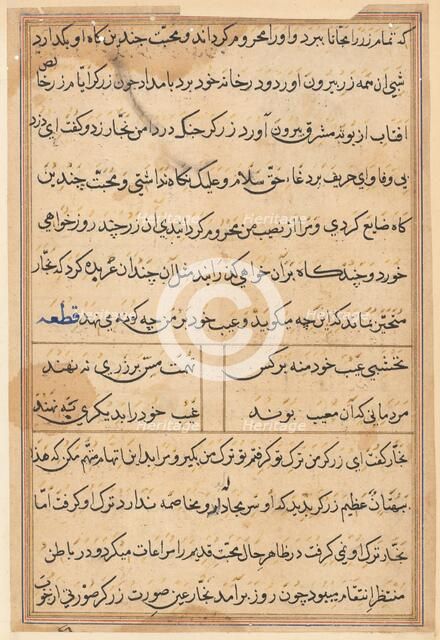 که تمام زر را مجانا ببرد و او را محروم گرداند و محبت چندین گاه او بگذارد
شبی آن همه زر بیرون آورد و در خانه خود برد بامداد چون زرگر ایام زر خالص
آفتاب از بوته مشرق بیرون آورد زرگر چنگ در دامن نجار زد و گفت ای دزد
بی وفا و ای حریف پر دغا حق سلام و علیک نگاه نداشتی و محبت چندین
گاه ضایع کردی و مرا از نصیب من محروم گردانیدی آن زر چند روز خواهی
خورد و چند گاه بر آن خواهی گذرانید مثل آن چندان عربده کرد که نجار
متحیر بماند که این چه میگوید و عیب خود بر من چگونه می نهد قطعه
نخشبی عیب خود منه بر کس تهمت مس بر زری نه نهند
مردمانی که آن معیب بوند عیب خود را بدیگری بنهند
نجار گفت ای زرگر من ترک تو گرفتم تو ترک من بگیر و مرا بدین اتهام متهم مکن که هذا
بهتان عظیم زرگر بدید که او سر مجادله و مخاصمه ندارد ترک او گرفت اما
نجار ترک او نمی گرفت در ظاهر حال محبت قدیم را مراعات میکرد و در باطن
منتظر انتقام میبود چون روز برآمد نجار عین صورت زرگر صورتی از چوب